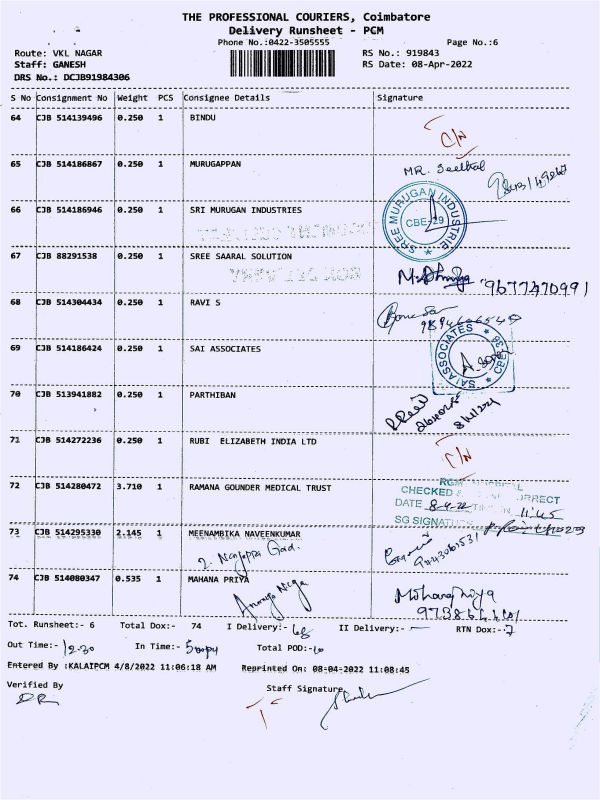 THE PROFESSIONAL COURIERS, Coimbatore
Delivery Runsheet - PCM
Phone No.:0422-3505555 Page No.:6
Route: VKL NAGAR RS No.: 919843
Staff: GANESH RS Date: 08-Apr-2022
DRS No.: DCJB91984306
S No Consignment No Weight PCS Consignee Details Signature
64 CJB 514139496 0.250 1 BINDU
C/N
65 CJB 514186867 0.250 1 MURUGAPPAN
MR.
66 CJB 514186946 0.250 1 SRI MURUGAN INDUSTRIES
SREE MURUGAN INDUSTRIE
CBE-29
67 CJB 88291538 0.250 1 SREE SAARAL SOLUTION
9677470991
68 CJB 514304434 0.250 1 RAVI S
69 CJB 514186424 0.250 1 SAI ASSOCIATES
SAI ASSOCIATES
70 CJB 513941882 0.250 1 PARTHIBAN
71 CJB 514272236 0.250 1 RUBI ELIZABETH INDIA LTD
C/N
72 CJB 514280472 3.710 1 RAMANA GOUNDER MEDICAL TRUST
CHECKED
DATE 8-4-22 11:45
73 CJB 514295330 2.145 1 MEENAMBIKA NAVEENKUMAR
74 CJB 514080347 0.535 1 MAHANA PRIYA
Tot. Runsheet:- 6 Total Dox:- 74 I Delivery:- 68 II Delivery:- — RTN Dox:- 7
Out Time:- 12-30 In Time:- Total POD:-
Entered By :KALAIPCM 4/8/2022 11:06:18 AM Reprinted On: 08-04-2022 11:08:45
Verified By Staff Signature